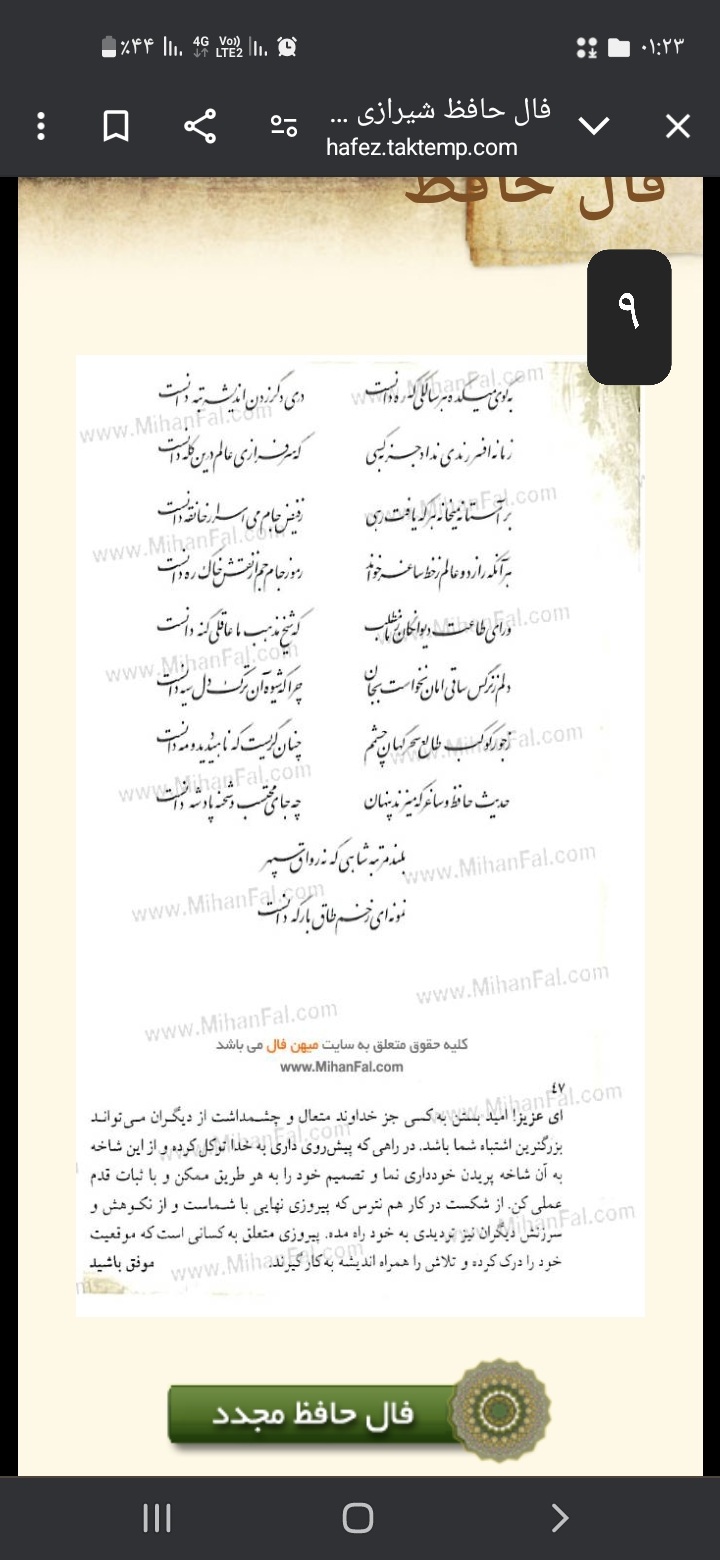 ٪۴۴ 4G Vo)) LTE2 ۰۱:۲۳
فال حافظ شیرازی ...
hafez.taktemp.com
فال حافظ
۹
به کوی میکده هر سالکی که ره دانست دری دگر زدن اندیشه تبه دانست
زمانه افسر رندی نداد جز به کسی که سرفرازی عالم درین کله دانست
بر آستانه میخانه هر که یافت رهی ز فیض جام می اسرار خانقه دانست
هر آنکه راز دو عالم ز خط ساغر خواند رموز جام جم از نقش خاک ره دانست
ورای طاعت دیوانگان ز ما مطلب که شیخ مذهب ما عاقلی گنه دانست
دلم ز نرگس ساقی امان نخواست بجان چرا که شیوه آن ترک دل سیه دانست
ز جور کوکب طالع سحرگهان چشم چنان گریست که ناهید دید و مه دانست
حدیث حافظ و ساغر که میزند پنهان چه جای محتسب و شحنه پادشه دانست
بلند مرتبه شاهی که نه رواق سپهر
نمونه ای ز خم طاق بارگه دانست
www.MihanFal.com
کلیه حقوق متعلق به سایت میهن فال می باشد
www.MihanFal.com
۴۷
ای عزیز! امید بستن به کسی جز خداوند متعال و چشمداشت از دیگران می‌تواند
بزرگترین اشتباه شما باشد. در راهی که پیش‌روی داری به خدا توکل کرده و از این شاخه
به آن شاخه پریدن خودداری نما و تصمیم خود را به هر طریق ممکن و با ثبات قدم
عملی کن. از شکست در کار هم نترس که پیروزی نهایی با شماست و از نکوهش و
سرزنش دیگران نیز تردیدی به خود راه مده. پیروزی متعلق به کسانی است که موقعیت
خود را درک کرده و تلاش را همراه اندیشه به کار گیرند. موفق باشید
فال حافظ مجدد